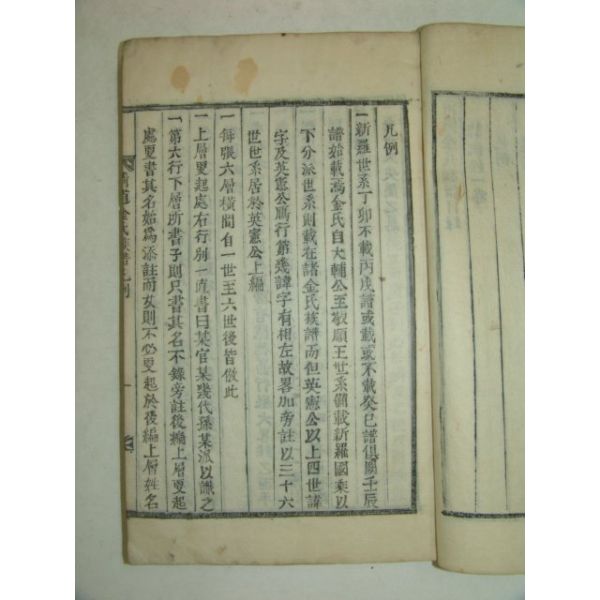 凡例
一新羅世系丁卯不載丙戌譜或載或不載癸巳譜俱闕壬辰
譜始載焉金氏自大輔公至敬順王世系備載新羅國乘以
下分派世系則載在諸金氏族譜而但英憲公以上四世諱
字及英憲公鴈行第幾諱字有相左故畧加旁註以三十六
世世系居於英憲公上編
一每張六層橫間自一世至六世後皆倣此
一上層更起處右行別一直書曰某官某幾代孫某派以識之
一第六行下層所書子則只書其名不錄旁註後編上層更起
處更書其名始爲添註而女則不必更起於後編上層姓名
道金氏族譜凡例